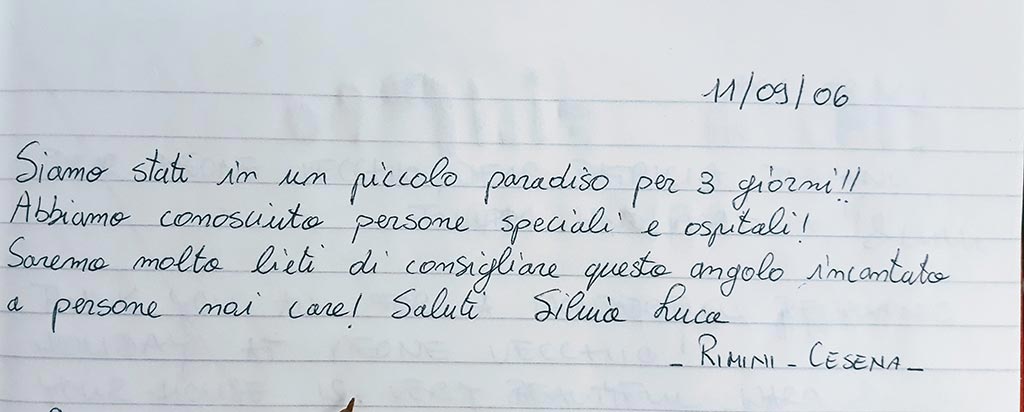 11/09/06
Siamo stati in un piccolo paradiso per 3 giorni!!
Abbiamo conosciuto persone speciali e ospitali!
Saremo molto lieti di consigliare questo angolo incantato
a persone noi care! Saluti Silvia Luca
- RIMINI - CESENA -